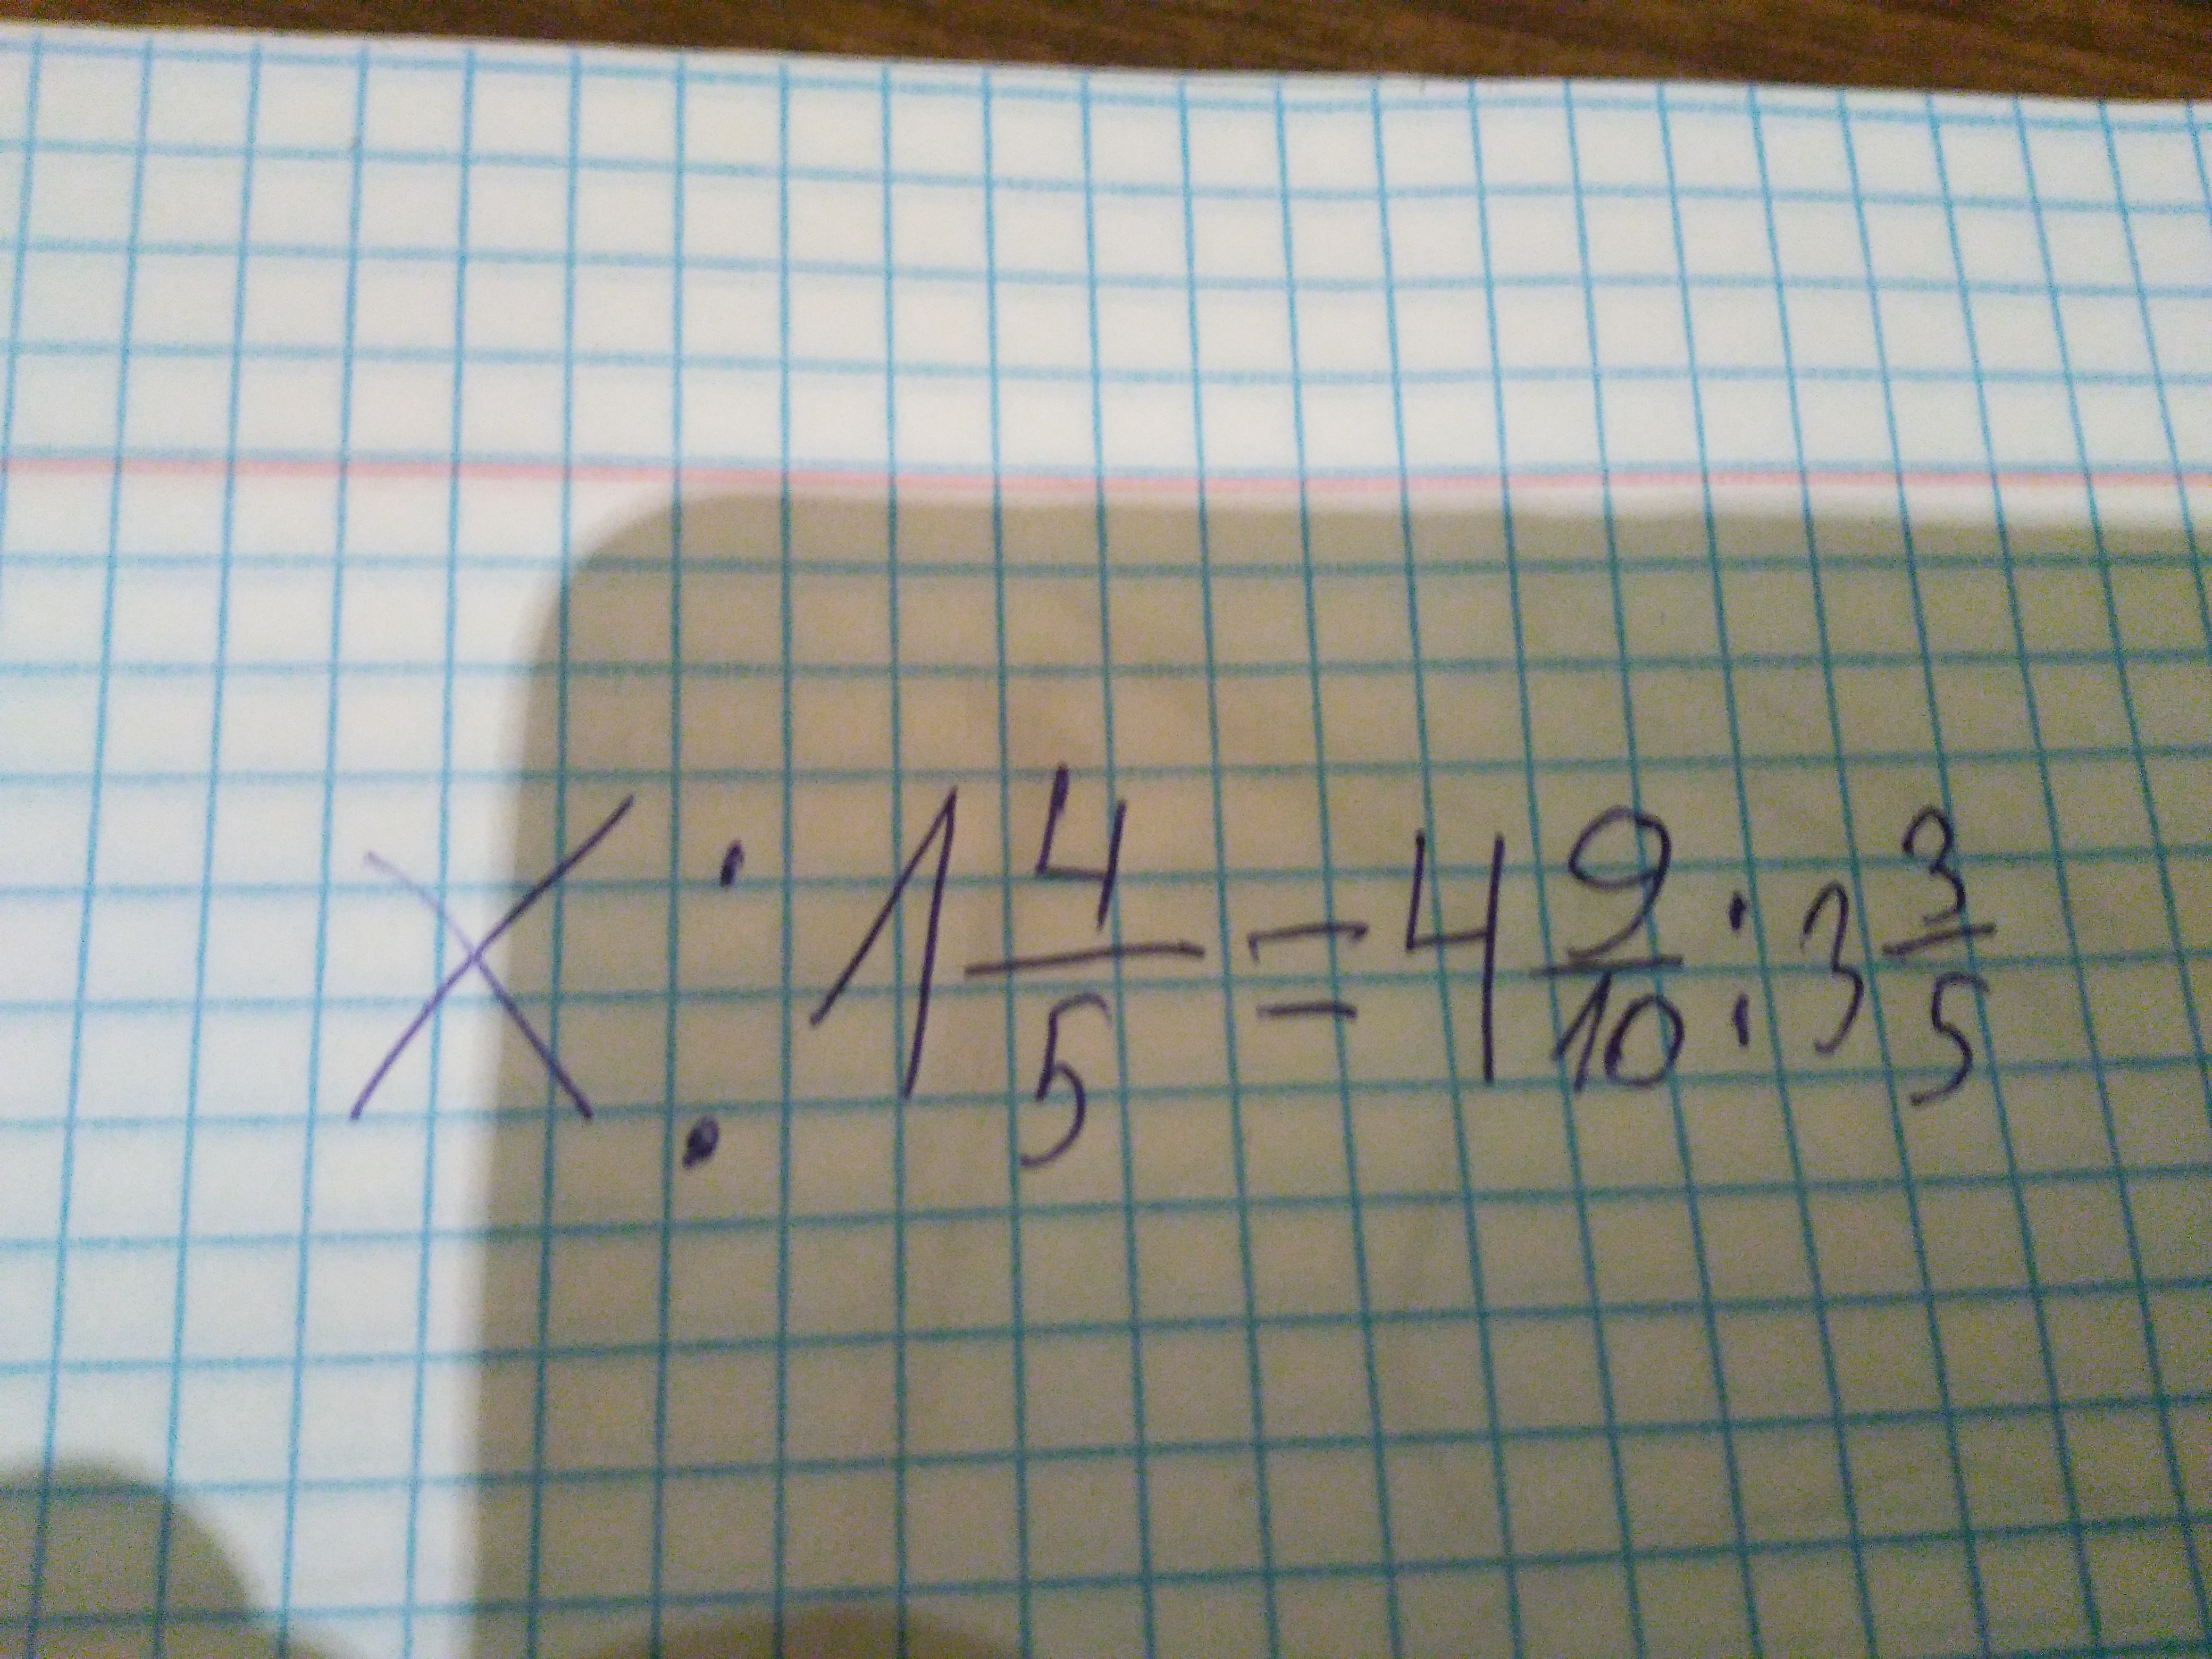 X : 1 4/5 = 4 9/10 : 3 3/5